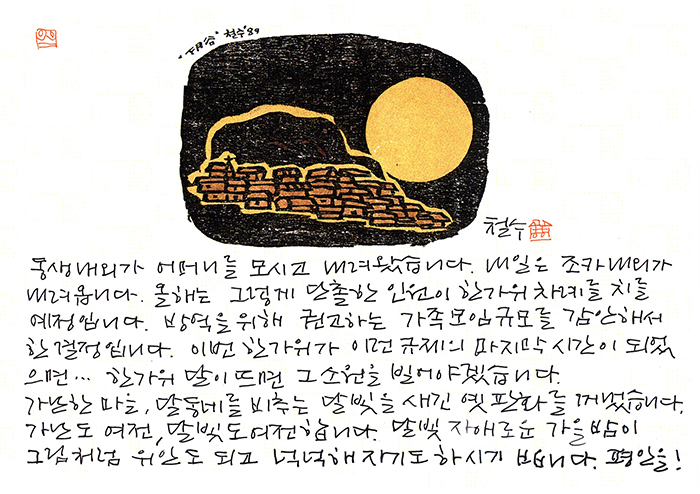 "下月谷" 철수 '89
철수
동생내외가 어머니를 모시고 내려왔습니다. 내일은 조카내외가
내려옵니다. 올해는 그렇게 단촐한 인원이 한가위 차례를 치를
예정입니다. 방역을 위해 권고하는 가족모임규모를 감안해서
한 결정입니다. 이번 한가위가 이런 규제의 마지막 시간이 되었
으면… 한가위 달이 뜨면 그 소원을 빌어야겠습니다.
가난한 마을, 달동네를 비추는 달빛을 새긴 옛 판화를 꺼냈습니다.
가난도 여전, 달빛도 여전합니다. 달빛 자애로운 가을밤이
그림처럼 위안도 되고 넉넉해지기도 하시기 바랍니다. 평안을!